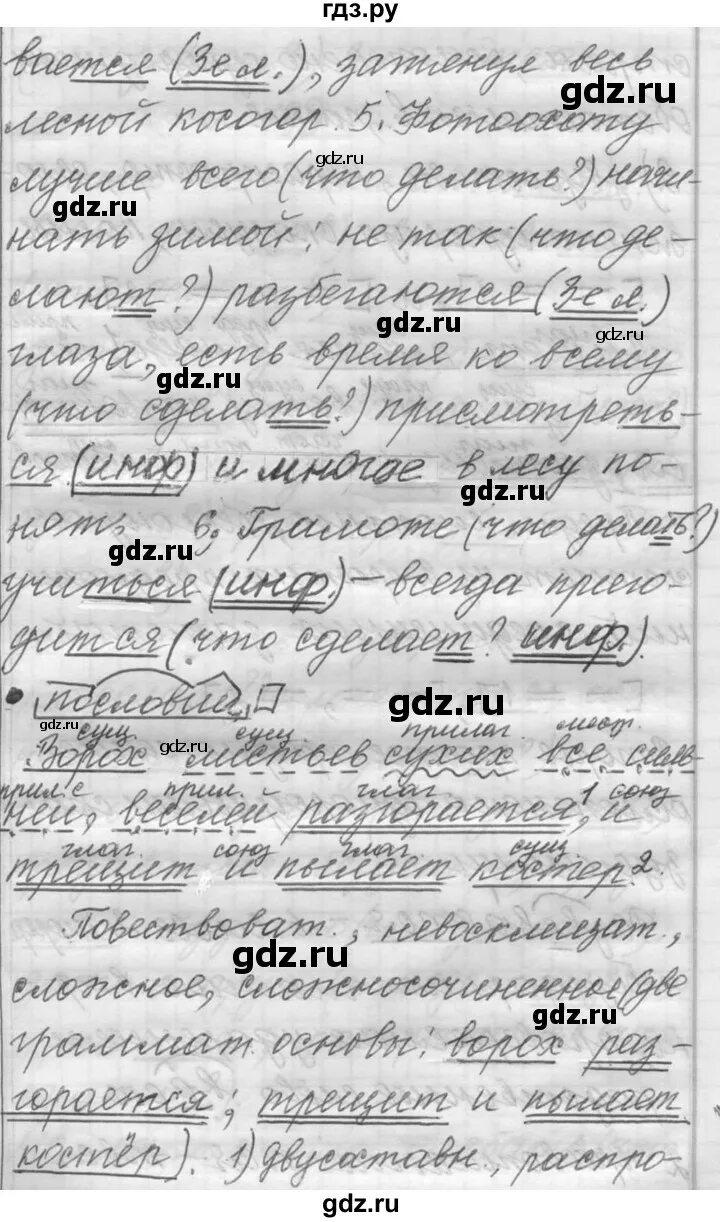 гдз.ру
вается (3е л.), затянул весь
лесной косогор. 5. Фотоохоту
лучше всего (что делать?) начи-
нать зимой: не так (что де-
лают?) разбегаются (3е л.)
глаза, есть время ко всему
(что сделать?) присмотреть-
ся (инф) и многое в лесу по-
нять. 6, Грамоте (что делать?)
учиться (инф.) – всегда приго-
дится (что сделает? инф.).
пословиц
сущ. сущ. прилаг. мест.
Ворох листьев сухих все силь-
прил.с прил. глаг 1 союз
ней, веселей разгорается, и
глаг. союз глаг. сущ.
трещит и пылает костер 2.
Повествоват., невосклицат.,
сложное, сложносочиненное (две
граммат. основы: ворох раз-
горается; трещит и пылает
костёр). 1) двусоставн., распро-
gdz.ru
gdz.ru
gdz.ru
gdz.ru
gdz.ru
gdz.ru
gdz.ru
gdz.ru
gdz.ru
gdz.ru
gdz.ru
gdz.ru
gdz.ru
gdz.ru